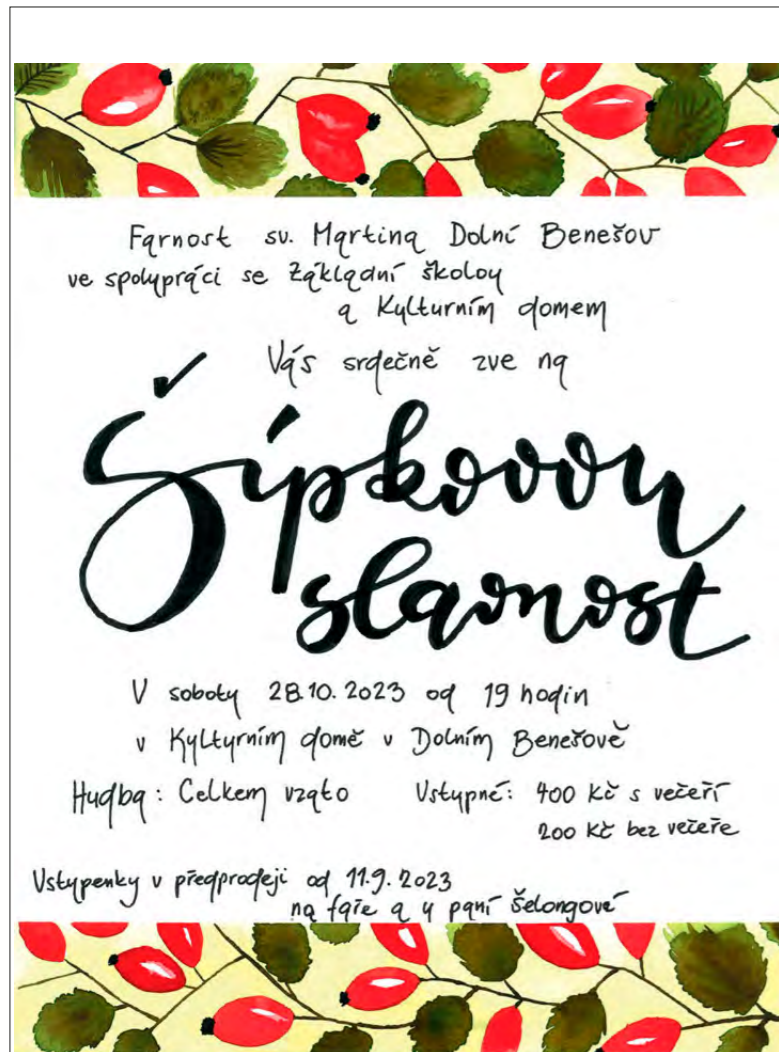 Farnost sv. Martina Dolní Benešov
ve spolupráci se Základní školou
a Kulturním domem
Vás srdečně zve na
Šípkovou
slavnost
V sobotu 28.10.2023 od 19 hodin
v Kulturním domě v Dolním Benešově
Hudba: Celkem vzato Vstupné: 400 Kč s večeří
200 Kč bez večeře
Vstupenky v předprodeji od 11.9.2023
na faře a u paní Šelongové